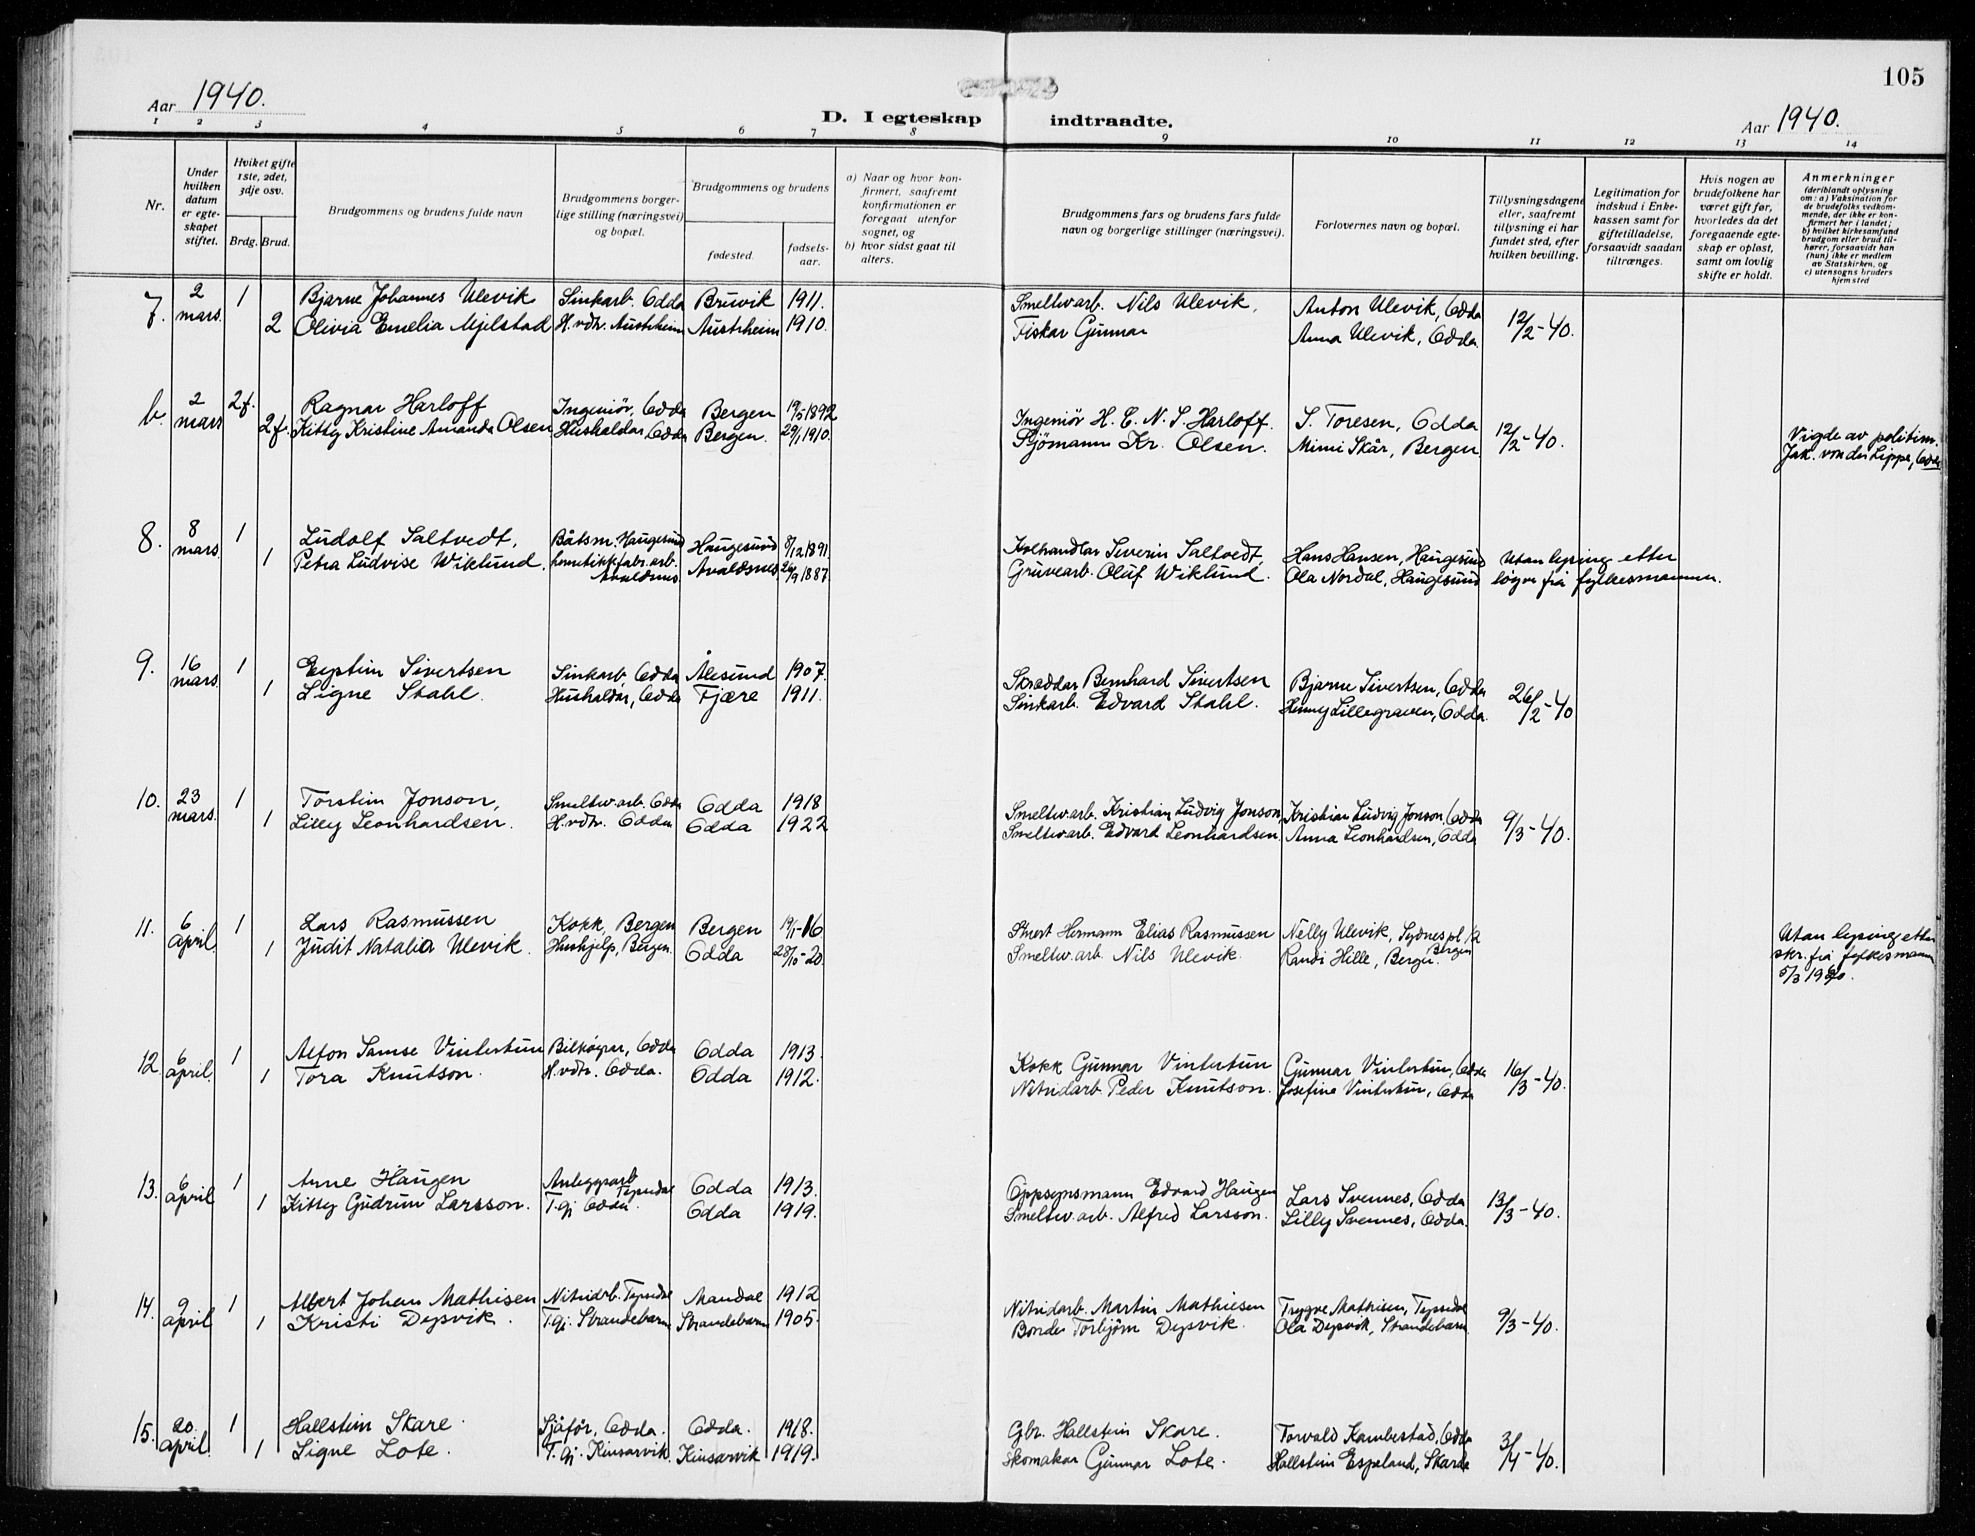 105
Aar 1940.
D. I egteskap indtraadte.
Aar 1940.
1 2 3 4 5 6 7 8 9 10 11 12 13 14
Nr.
Under hvilken datum er egteskapet stiftet.
Hviket gifte 1ste, 2det, 3dje osv.
Brdg. Brud.
Brudgommens og brudens fulde navn
Brudgommens borgerlige stilling (næringsvei) og bopæl.
Brudgommens og brudens
fødested.
fødselsaar.
a) Naar og hvor konfirmert, saafremt konfirmationen er foregaat utenfor sognet, og
b) hvor sidst gaat til alters.
Brudgommens fars og brudens fars fulde navn og borgerlige stillinger (næringsvei).
Forlovernes navn og bopæl.
Tillysningsdagene eller, saafremt tillysning ei har fundet sted, efter hvilken bevilling.
Legitimation for indskud i Enkekassen samt for giftetilladelse, forsaavidt saadan tiltrænges.
Hvis nogen av brudefolkene har været gift før, hvorledes da det foregaaende egteskap er opløst, samt om lovlig skifte er holdt.
Anmerkninger
(deriblandt oplysning om: a) Vaksination for de brudefolks vedkommende, der ikke er konfirmert her i landet; b) hvilket kirkesamfund brudgom eller brud tilhører, forsaavidt han (hun) ikke er medlem av Statskirken, og c) utensogns bruders hjemsted
7. 2 mars. 1 Bjarne Johannes Ulevik Sinkarb. Odda Bruvik 1911. Smeltv.arb. Nils Ulevik. Anton Ulevik, Odda 12/2-40.
2 Olivia Emelia Mjelstad H.vdtr. Austrheim Austrheim 1910. Fiskar Gunnar Anna Ulevik, Odda.
b. 2 mars 2f. Ragnar Harloff Ingeniör, Odda Bergen 19/5 1892 Ingeniör H. E. N. S. Harloff. S. Toresen, Odda 12/2-40. Vigde av politim.
2f. Kitty Kristine Amanda Olsen Hushaldar, Odda Bergen. 29/1 1910. Sjömann Kr. Olsen. Mimi Skår, Bergen Jak. von der Lippe, Odda
8. 8 mars. 1 Ludolf Saltvedt, Båtsm. Haugesund Haugesund 8/12 1891 Kolhandlar Severin Saltvedt, Hans Hansen, Haugesund Utan lysing etter
1 Petra Ludvise Wiklund. hermetikkfabr. arb. Avaldsnes Avaldsnes 26/9 1887. Gruvearb. Oluf Wiklund. Ola Nordal, Haugesund løyve frå fylkesmannen.
9. 16 mars. 1 Eystein Sivertsen Sinkarb. Odda Ålesund 1907. Skreddar Bernhard Sivertsen Bjarne Sivertsen, Odda 26/2-40
1 Signe Stahl. Hushaldar, Odda Fjære 1911. Sinkarb. Edvard Stahl. Henny Lillegraven, Odda.
10. 23 mars. 1 Torstein Jonson, Smeltv.arb. Odda Odda 1918 Smeltv.arb. Kristian Ludvig Jonson, Kristian Ludvig Jonson, Odda 9/3-40.
1 Lilly Leonhardsen. H.vdtr. Odda Odda 1922 Smeltv.arb. Edvard Leonhardsen. Anna Leonhardsen, Odda
11. 6 april. 1 Lars Rasmussen Kokk, Bergen Bergen 19/1-16 Hermann Elias Rasmussen Nelly Ulevik, Sydnespl. 12 Bergen Utan lysing etter
1 Judit Natalia Ulevik. Hushjelp, Bergen. Odda 28/10-20. Smeltv.arb. Nils Ulevik. Randi Hille, Bergen. skr. frå fylkesmann
5/3 1940.
12. 6 april. 1 Alfon Samse Vintertun Bilkøyrar, Odda Odda 1913. Kokk Gunnar Vintertun Gunnar Vintertun, Odda 16/3-40.
1 Tora Knutson. H.vdtr. Odda. Odda 1912. Nitridarb. Peder Knutson. Josefine Vintertun, Odda
13. 6 april 1 Arne Haugen Anleggsarb. Tyssedal Odda 1913. Oppsynsmann Edvard Haugen Lars Svennes, Odda 13/3-40.
1 Kitty Gudrun Larsson. T.gj. Odda. Odda 1919. Smeltv.arb. Alfred Larsson. Lilly Svennes, Odda.
14. 9 april 1 Albert Johan Mathisen Nitridarb. Tyssedal Mandal 1912 Nitridarb. Martin Mathiesen Trygve Mathisen, Tyssedal 9/3-40.
1 Kristi Dysvik. T.gj. Strandebarm Strandebarm 1905. Bonde Torbjørn Dysvik. Ola Dysvik, Strandebarm
15. 20. april. 1 Hallstein Skare. Sjåfør, Odda. Odda. 1918. Gbr. Hallstein Skare. Torvald Kambestad, Odda 3/4-40.
1 Signe Lote. T.gj. Kinsarvik. Kinsarvik 1919. Skomakar Gunnar Lote. Hallstein Espeland, Skarde